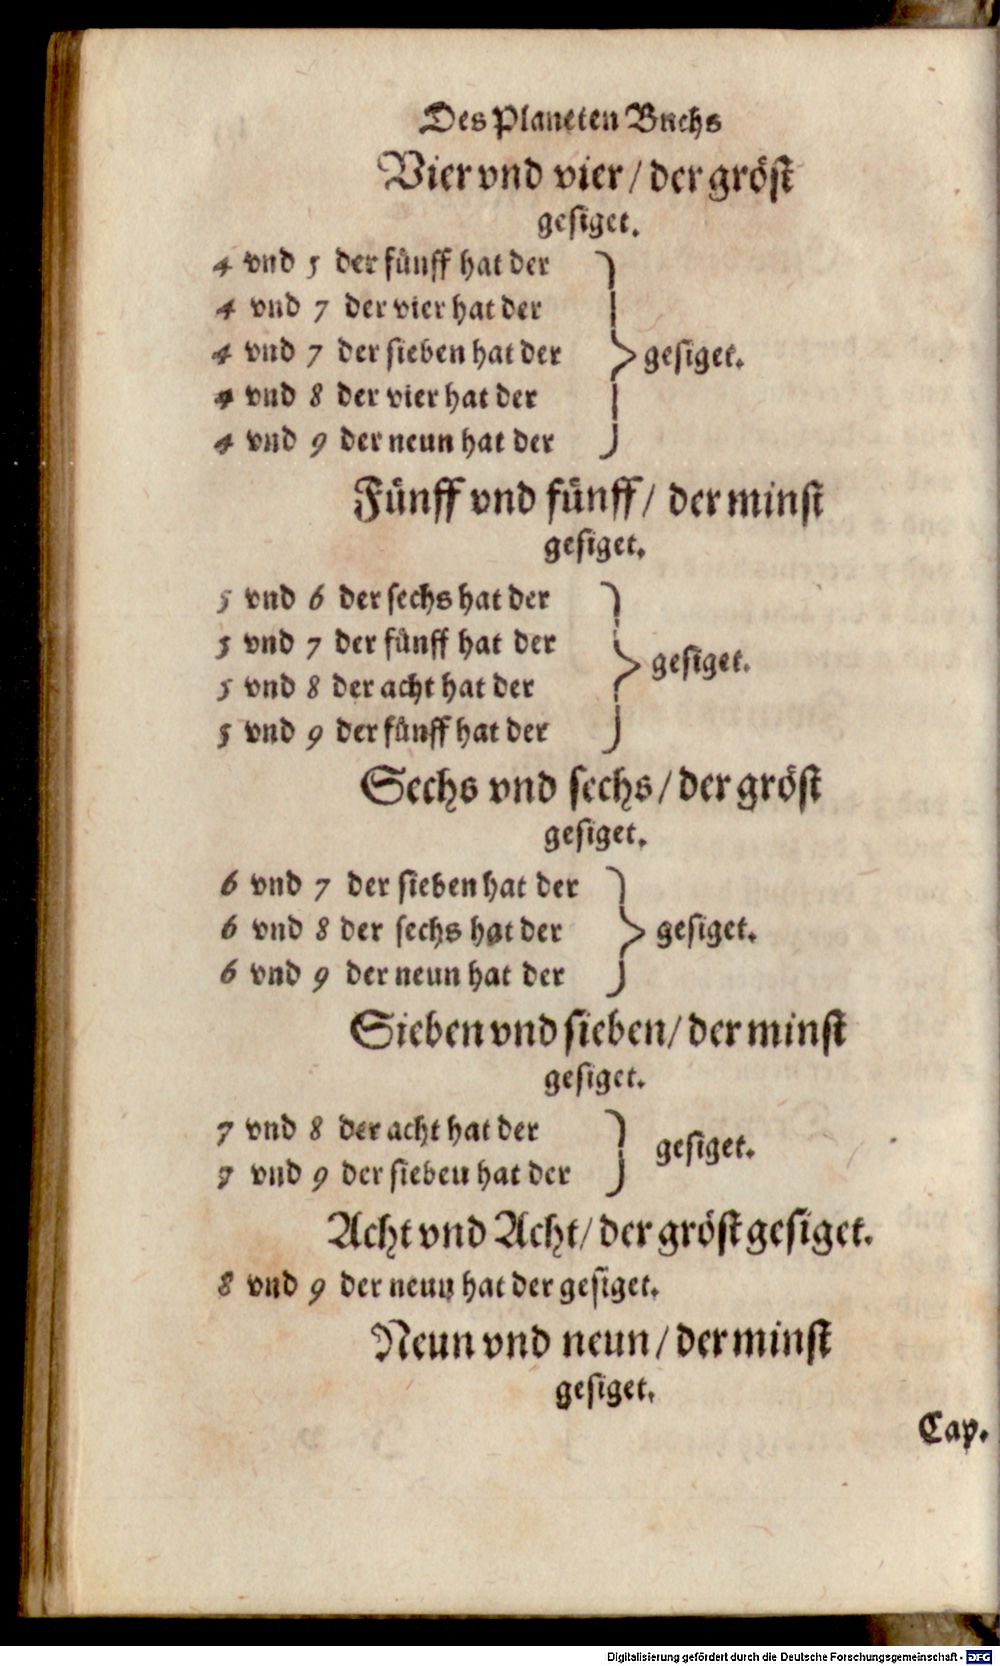 Des Planeten Buchs
Vier vnd vier / der gröst
gesiget.
4 vnd 5 der fünff hat der
4 vnd 7 der vier hat der
4 vnd 7 der sieben hat der
gesiget.
4 vnd 8 der vier hat der
4 vnd 9 der neun hat der
Fünff vnd fünff / der minst
gesiget.
5 vnd 6 der sechs hat der
5 vnd 7 der fünff hat der
gesiget.
5 vnd 8 der acht hat der
5 vnd 9 der fünff hat der
Sechs vnd sechs / der gröst
gesiget.
6 vnd 7 der sieben hat der
6 vnd 8 der sechs hat der
gesiget.
6 vnd 9 der neun hat der
Sieben vnd sieben / der minst
gesiget.
7 vnd 8 der acht hat der
gesiget.
7 vnd 9 der sieben hat der
Acht vnd Acht / der gröst gesiget.
8 vnd 9 der neun hat der gesiget.
Neun vnd neun / der minst
gesiget.
Cap.
Digitalisierung gefördert durch die Deutsche Forschungsgemeinschaft - DFG